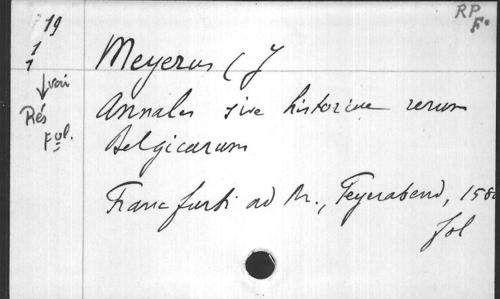 19
1
1
↓ voir
Rés
Fol.
RP
F°
Meyerus (J
Annales sive historiae rerum
Belgicarum
Francfurti ad M., Feyerabend, 158
fol